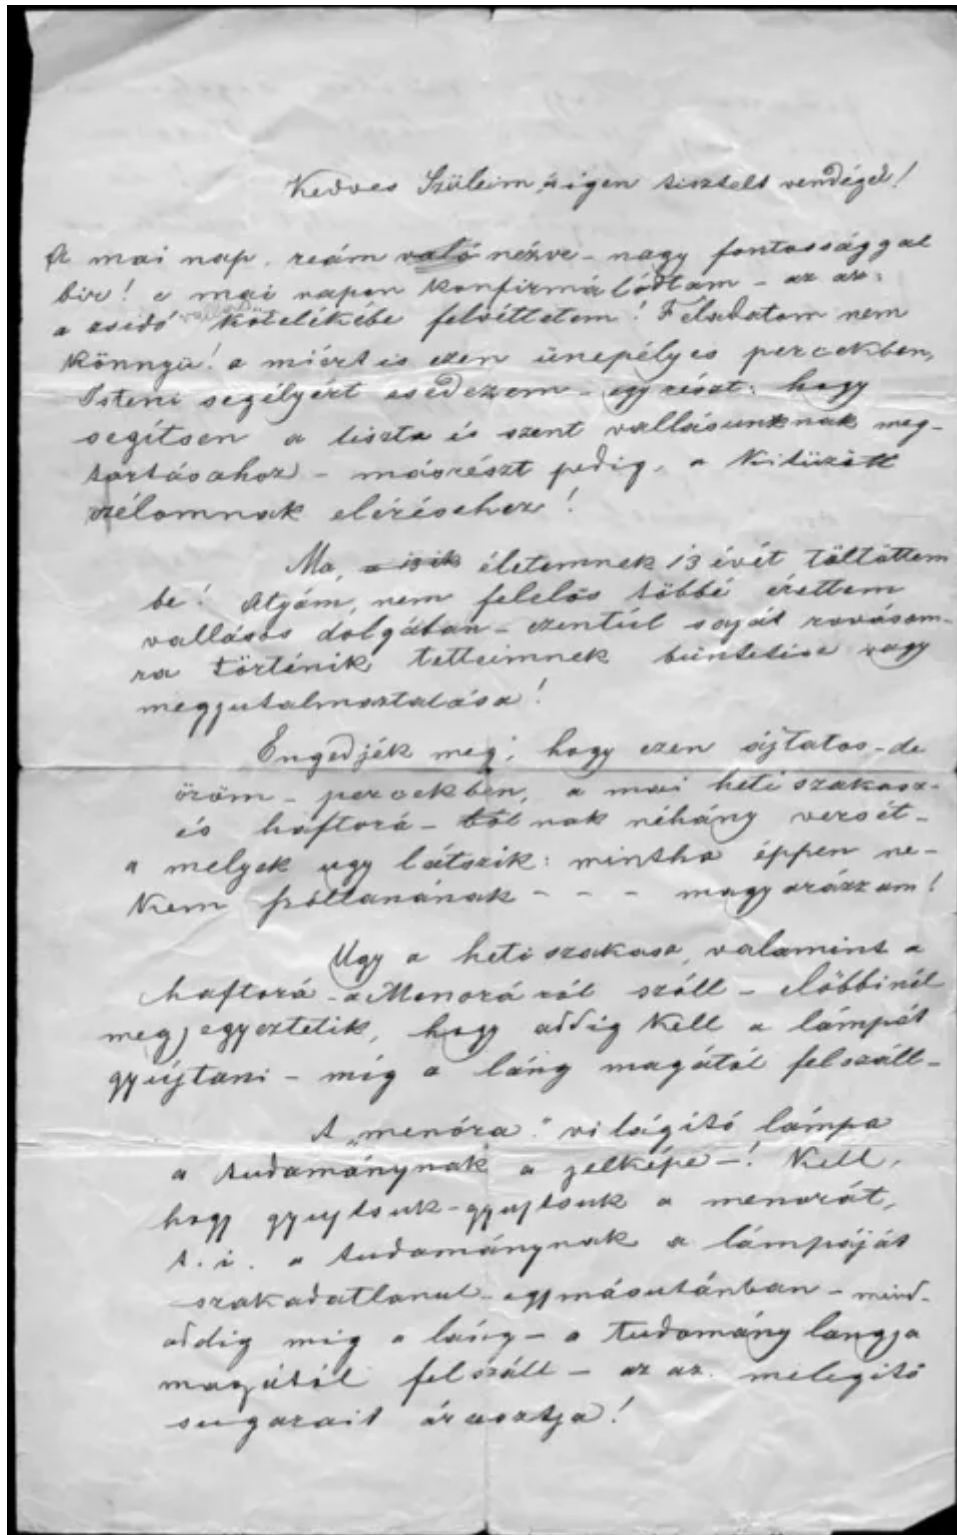 Kedves Szüleim, s igen tisztelt vendégek!
A mai nap, reám való nézve – nagy fontossággal
bir! e mai napon konfirmálódtam – az az:
a zsidó vallás kötelékébe felvéttettem! Feladatom nem
könnyü! a miért is ezen ünepélyes percekben,
Isteni segélyért esedezem – egyrészt: hogy
segítsen a tiszta és szent vallásunknak meg-
tartásához – másrészt pedig, a kitüzött
czélomnak eléréséhez!
Ma, életemnek 13 évét töltöttem
be! Atyám, nem felelős többé érettem
vallásos dolgában – ezentúl saját rovásom-
ra történik tetteimnek büntetése vagy
megjutalmaztatása!
Engedjék meg, hogy ezen ájtatos – de
öröm – percekben, a mai heti szakasz-
és haftorá – ból nak néhány versét –
a melyek ugy látszik: mintha éppen ne-
kem szóllanának – – – magyarázzam!
Ugy a heti szakasz, valamint a
haftorá – a Menoráról szóll – előbbinél
megjegyeztetik, hogy addig kell a lámpát
gyújtani – míg a láng magától felszáll –
A „menóra" világító lámpa
a tudománynak a jelképe –! Kell,
hogy gyujtsuk – gyujtsuk a menorát,
t. i. a tudománynak a lámpáját
szakadatlanul – egymásutánban – mind-
addig míg a láng – a tudomány langja
magától felszáll – az az. melegítő
sugarait árasztja!